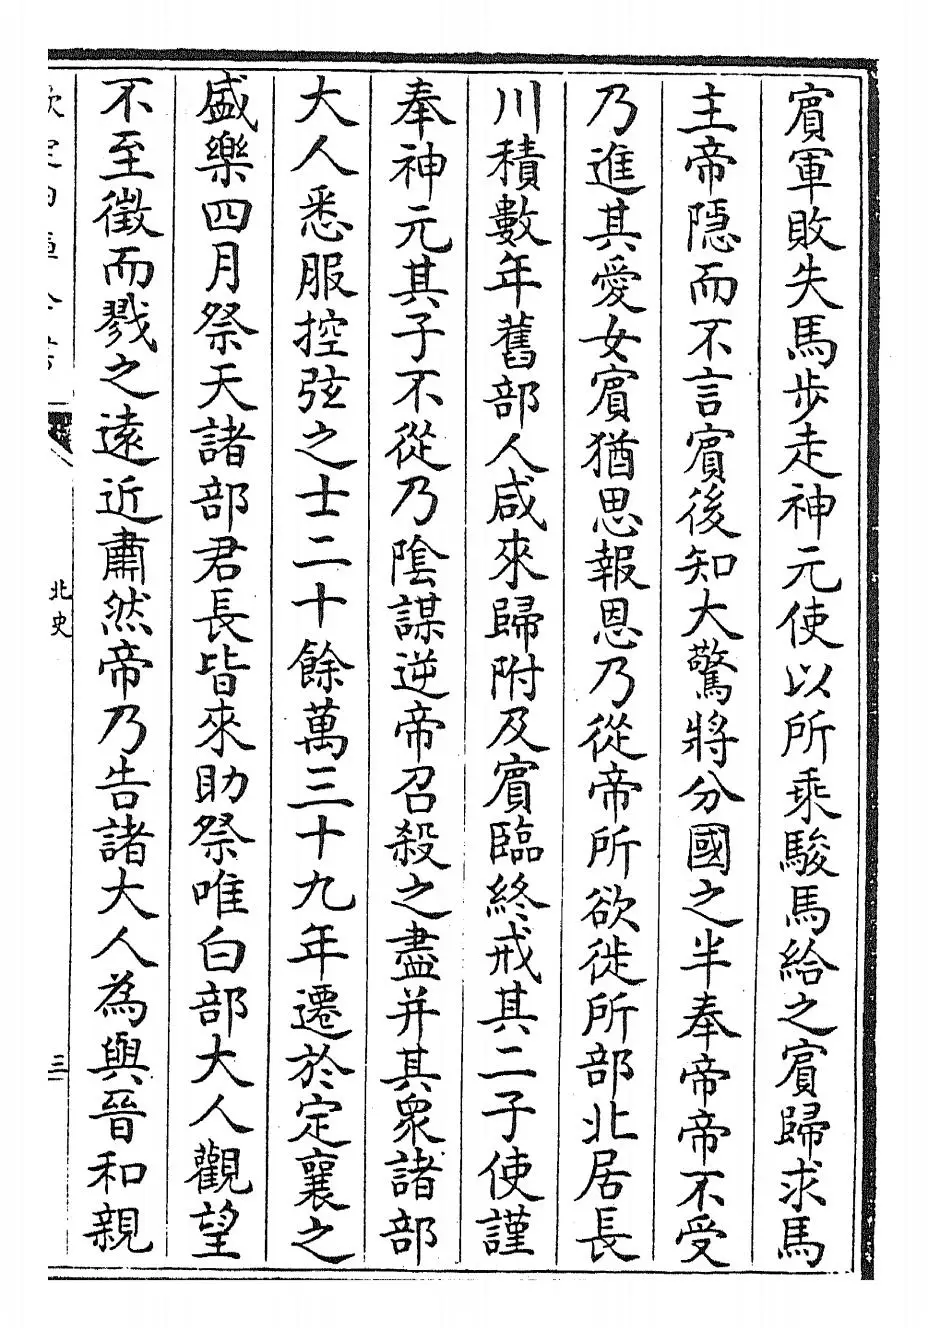 賔軍敗失馬步走神元使以所乘駿馬給之賔歸求馬
主帝隱而不言賔後知大驚將分國之半奉帝帝不受
乃進其愛女賔猶思報恩乃從帝所欲徙所部北居長
川積數年舊部人咸來歸附及賔臨終戒其二子使謹
奉神元其子不從乃陰謀逆帝召殺之盡并其衆諸部
大人悉服控弦之士二十餘萬三十九年遷於定襄之
盛樂四月祭天諸部君長皆來助祭唯白部大人觀望
不至徵而戮之遠近肅然帝乃告諸大人為與晉和親
北史
三